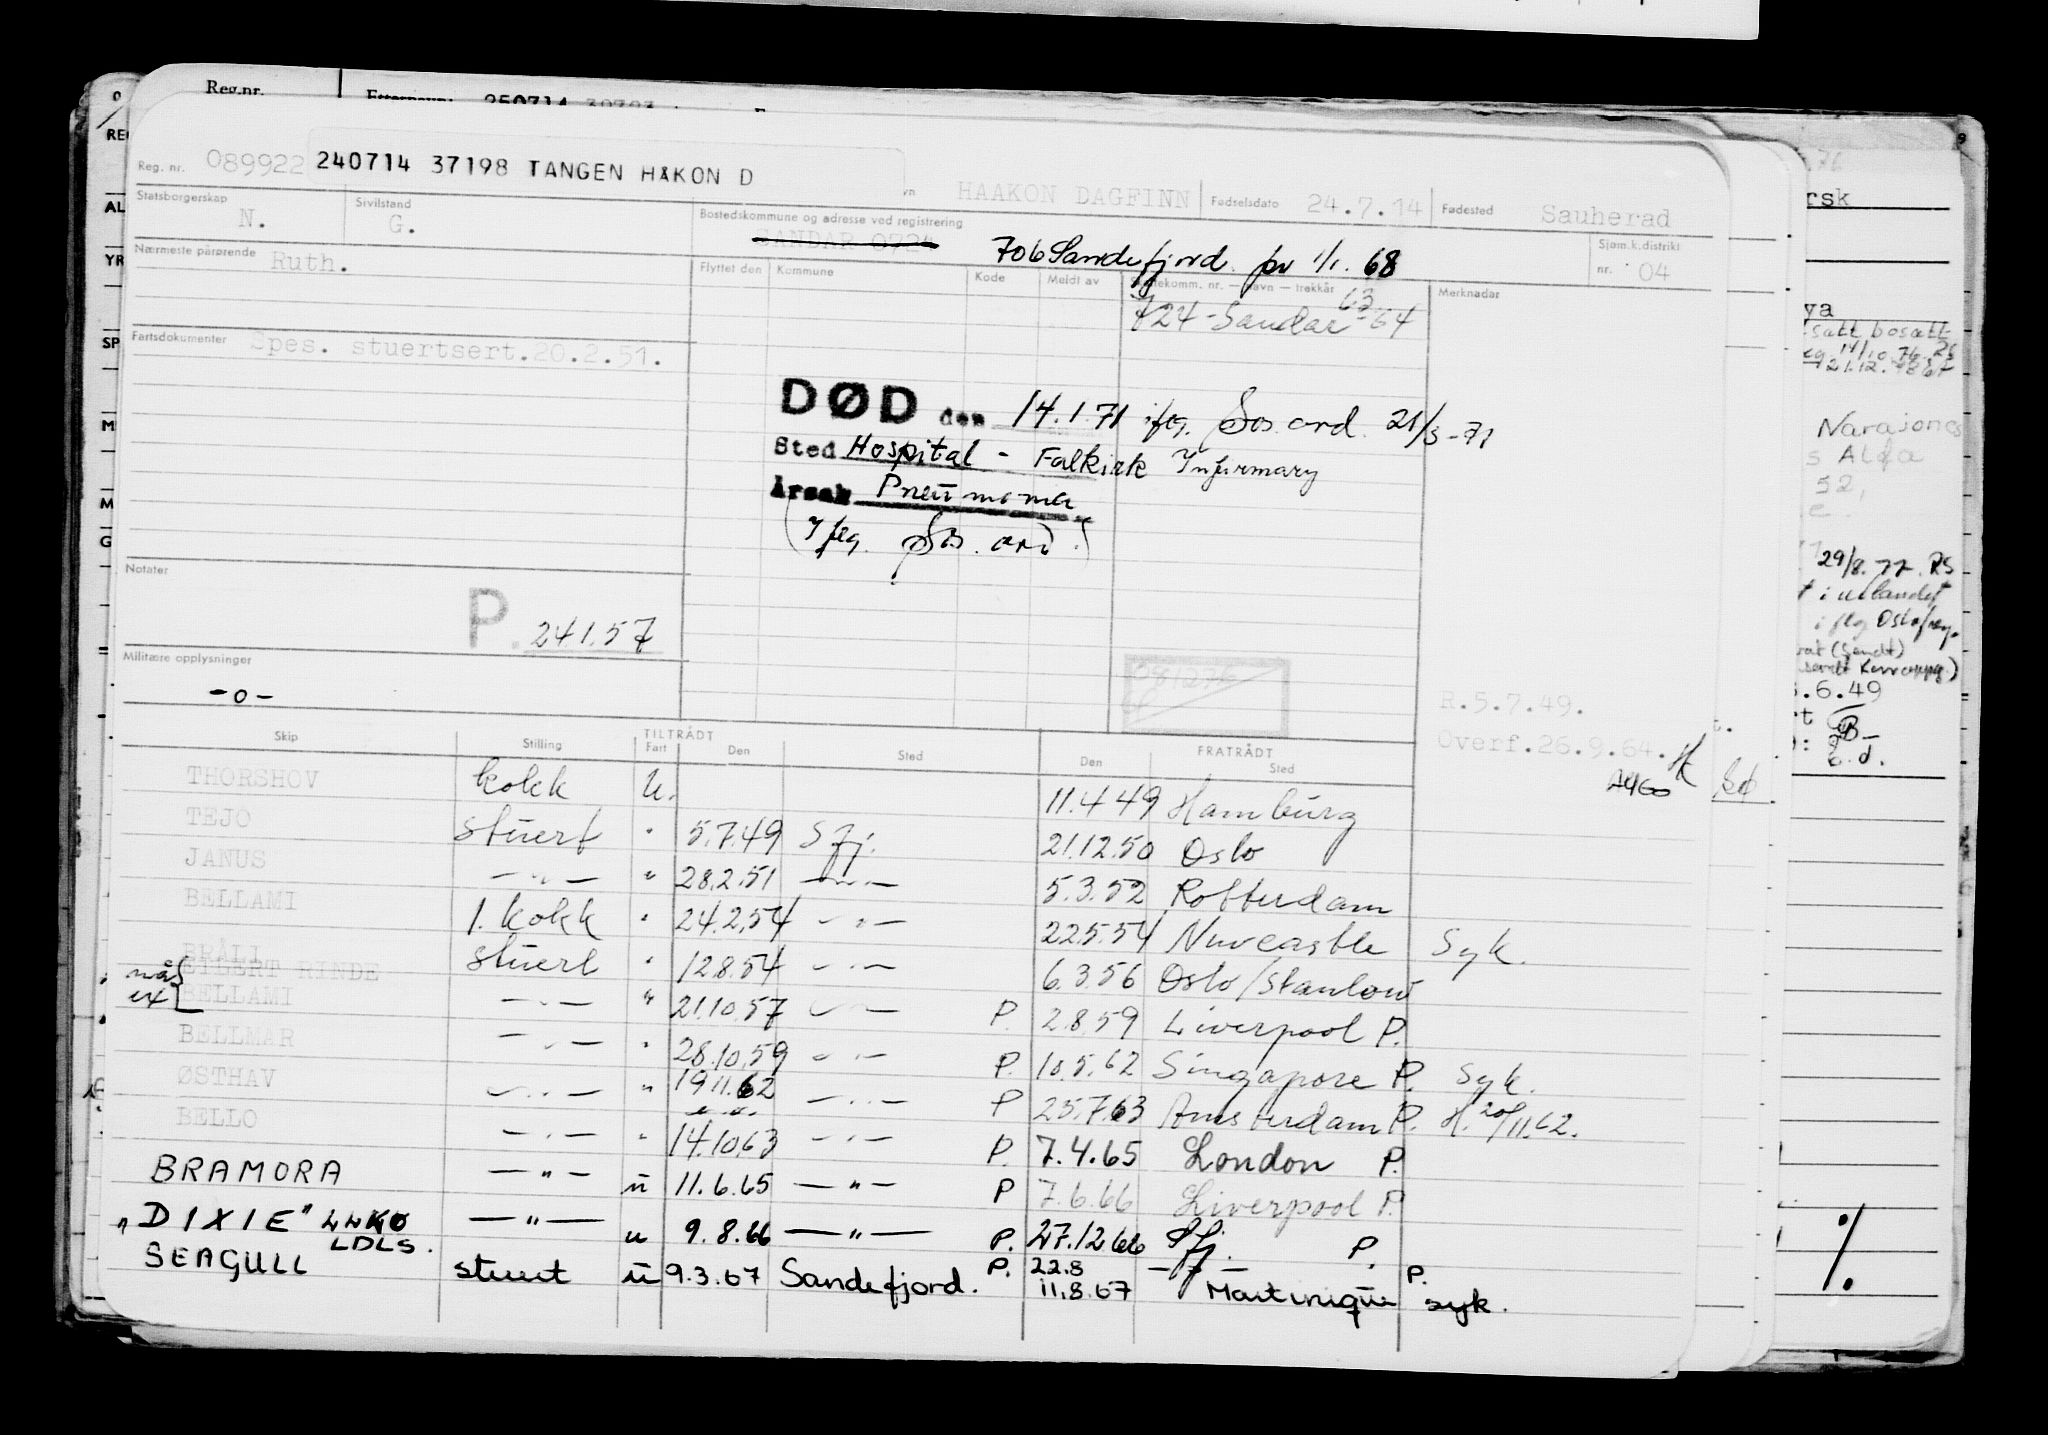 Reg.nr.
Reg. nr. 089922 240714 37198 TANGEN HÅKON D HAAKON DAGFINN Fødselsdato 24.7.14 Fødested Sauherad
Statsborgerskap N. Sivilstand G. Bostedskommune og adresse ved registrering SANDAR 0724 706 Sandefjord pr 1/1. 68 Sjøm.k.distrikt nr. 04
Nærmeste pårørende Ruth. Flyttet den Kommune Kode Meldt av Merknader
724 - Sandar 63-64
Fartsdokumenter Spes. stuertsert.20.2.51.
DØD den 14.1.71 iflg. Sos. ard. 21/3-71
Sted Hospital - Falkirk Infirmary
Årsak Pneumonia
(Iflg. Sos. ard.)
Notater
P. 24.1.57
Militære opplysninger
-o-
081276
R.5.7.49.
Overf.26.9.64.
Skip Stilling TILTRÅDT Fart Den Sted FRATRÅDT Den Sted
THORSHOV kokk U. 11.4.49 Hamburg
TEJO stuert " 5.7.49 Sfj. 21.12.50 Oslo
JANUS — " — " 28.2.51 — " — 5.3.52 Rotterdam
BELLAMI 1. kokk " 24.2.54 — " — 22.5.54 Newcastle Syk.
BRÅLI stuert " 12.8.54 — " — 6.3.56 Oslo/Stanlow
EILERT RINDE
nå ex BELLAMI — " — " 21.10.57 — " — P. 2.8.59 Liverpool P.
BELLMAR — " — " 28.10.59 — " — P. 10.5.62 Singapore P. Syk.
ØSTHAV — " — " 19.11.62 — " — P 25.7.63 Amsterdam P. H. 20/11.62.
BELLO — " — " 14.10.63 — " — P. 7.4.65 London P.
BRAMORA — " — u 11.6.65 — " — P 7.6.66 Liverpool P.
"DIXIE" LLKO — " — u 9.8.66 — " — P. 27.12.66 Sfj. P.
LDLS.
SEAGULL stuert u 9.3.67 Sandefjord. P. 22.8 — " — P.
11.8.67 Martinique syk.
Narajones
52,
29/8.77. RS
t i utlandet
.6.49